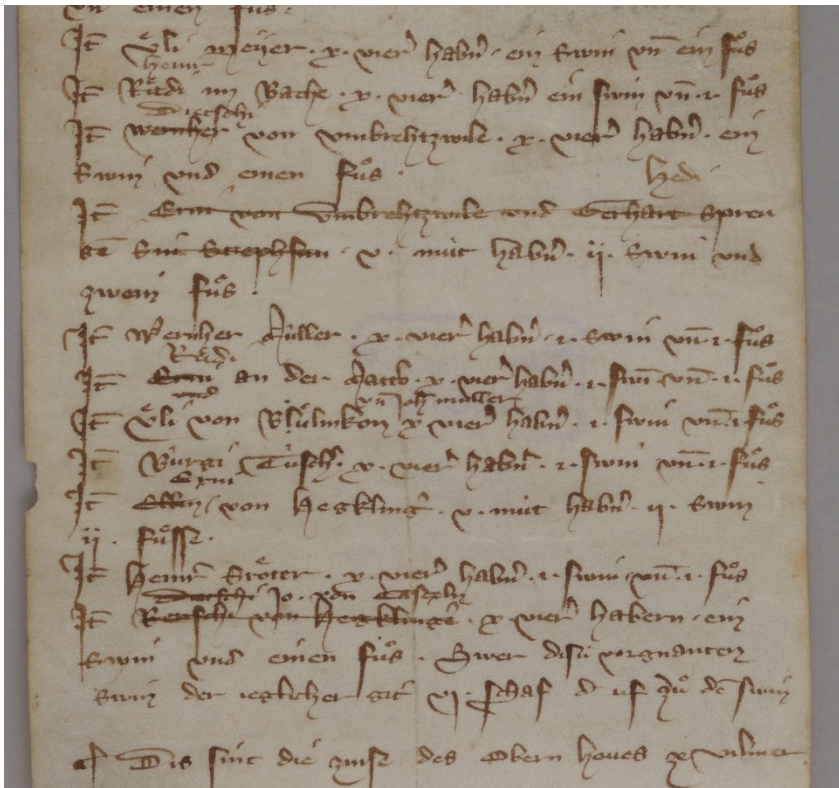 vn einen fůs ·
Jt Ůli meyer · x · vierͬ habn̄ · ein swin vn̄ ein fůs
heinr
Jt Růdi im Bache · x · vierͬ habn̄ ein swin vn̄ · i · fůs
Dietschi
Jt wernher von vmbrehtzwile · x · vierͬ habn̄ · ein
swin vnd einen fůs ·
hedi
Jt Erni von vmbrehtzwile vnd Gerhart Spren
v · müt habn̄ · ij · swin vnd
zwein fůs ·
Jt Wernher Müller · x · vierͬ habn̄ · i · swin vn̄ · i · fůs
Růdi
Jt an der Matt · x · vierͬ habn̄ · i · swin vn̄ · i · fůs
vn̄ Joh müller
Jt Ůli von x vierͬ habn̄ · i · swin vn̄ · i · fůs
Jt Bürgi Tüsch · x · vierͬ habn̄ · i · swin vn̄ · i · fůs
Erni
Jt von Hegkling · v · müt habn̄ · ij · swin
ij · fůsse ·
Jt Heinr Ströler · x · vierͬ habn̄ · i · swin vn̄ · i · fůs
Jo · von
Jt von Hegklinge · x · vierͬ habern · ein
swin vnd einen fůs · Swer disü vorgnanten
swin der ieglicher git vj · schaf d uf zů dē swin
Dis sint die zinse des Obern houes ze vilmer